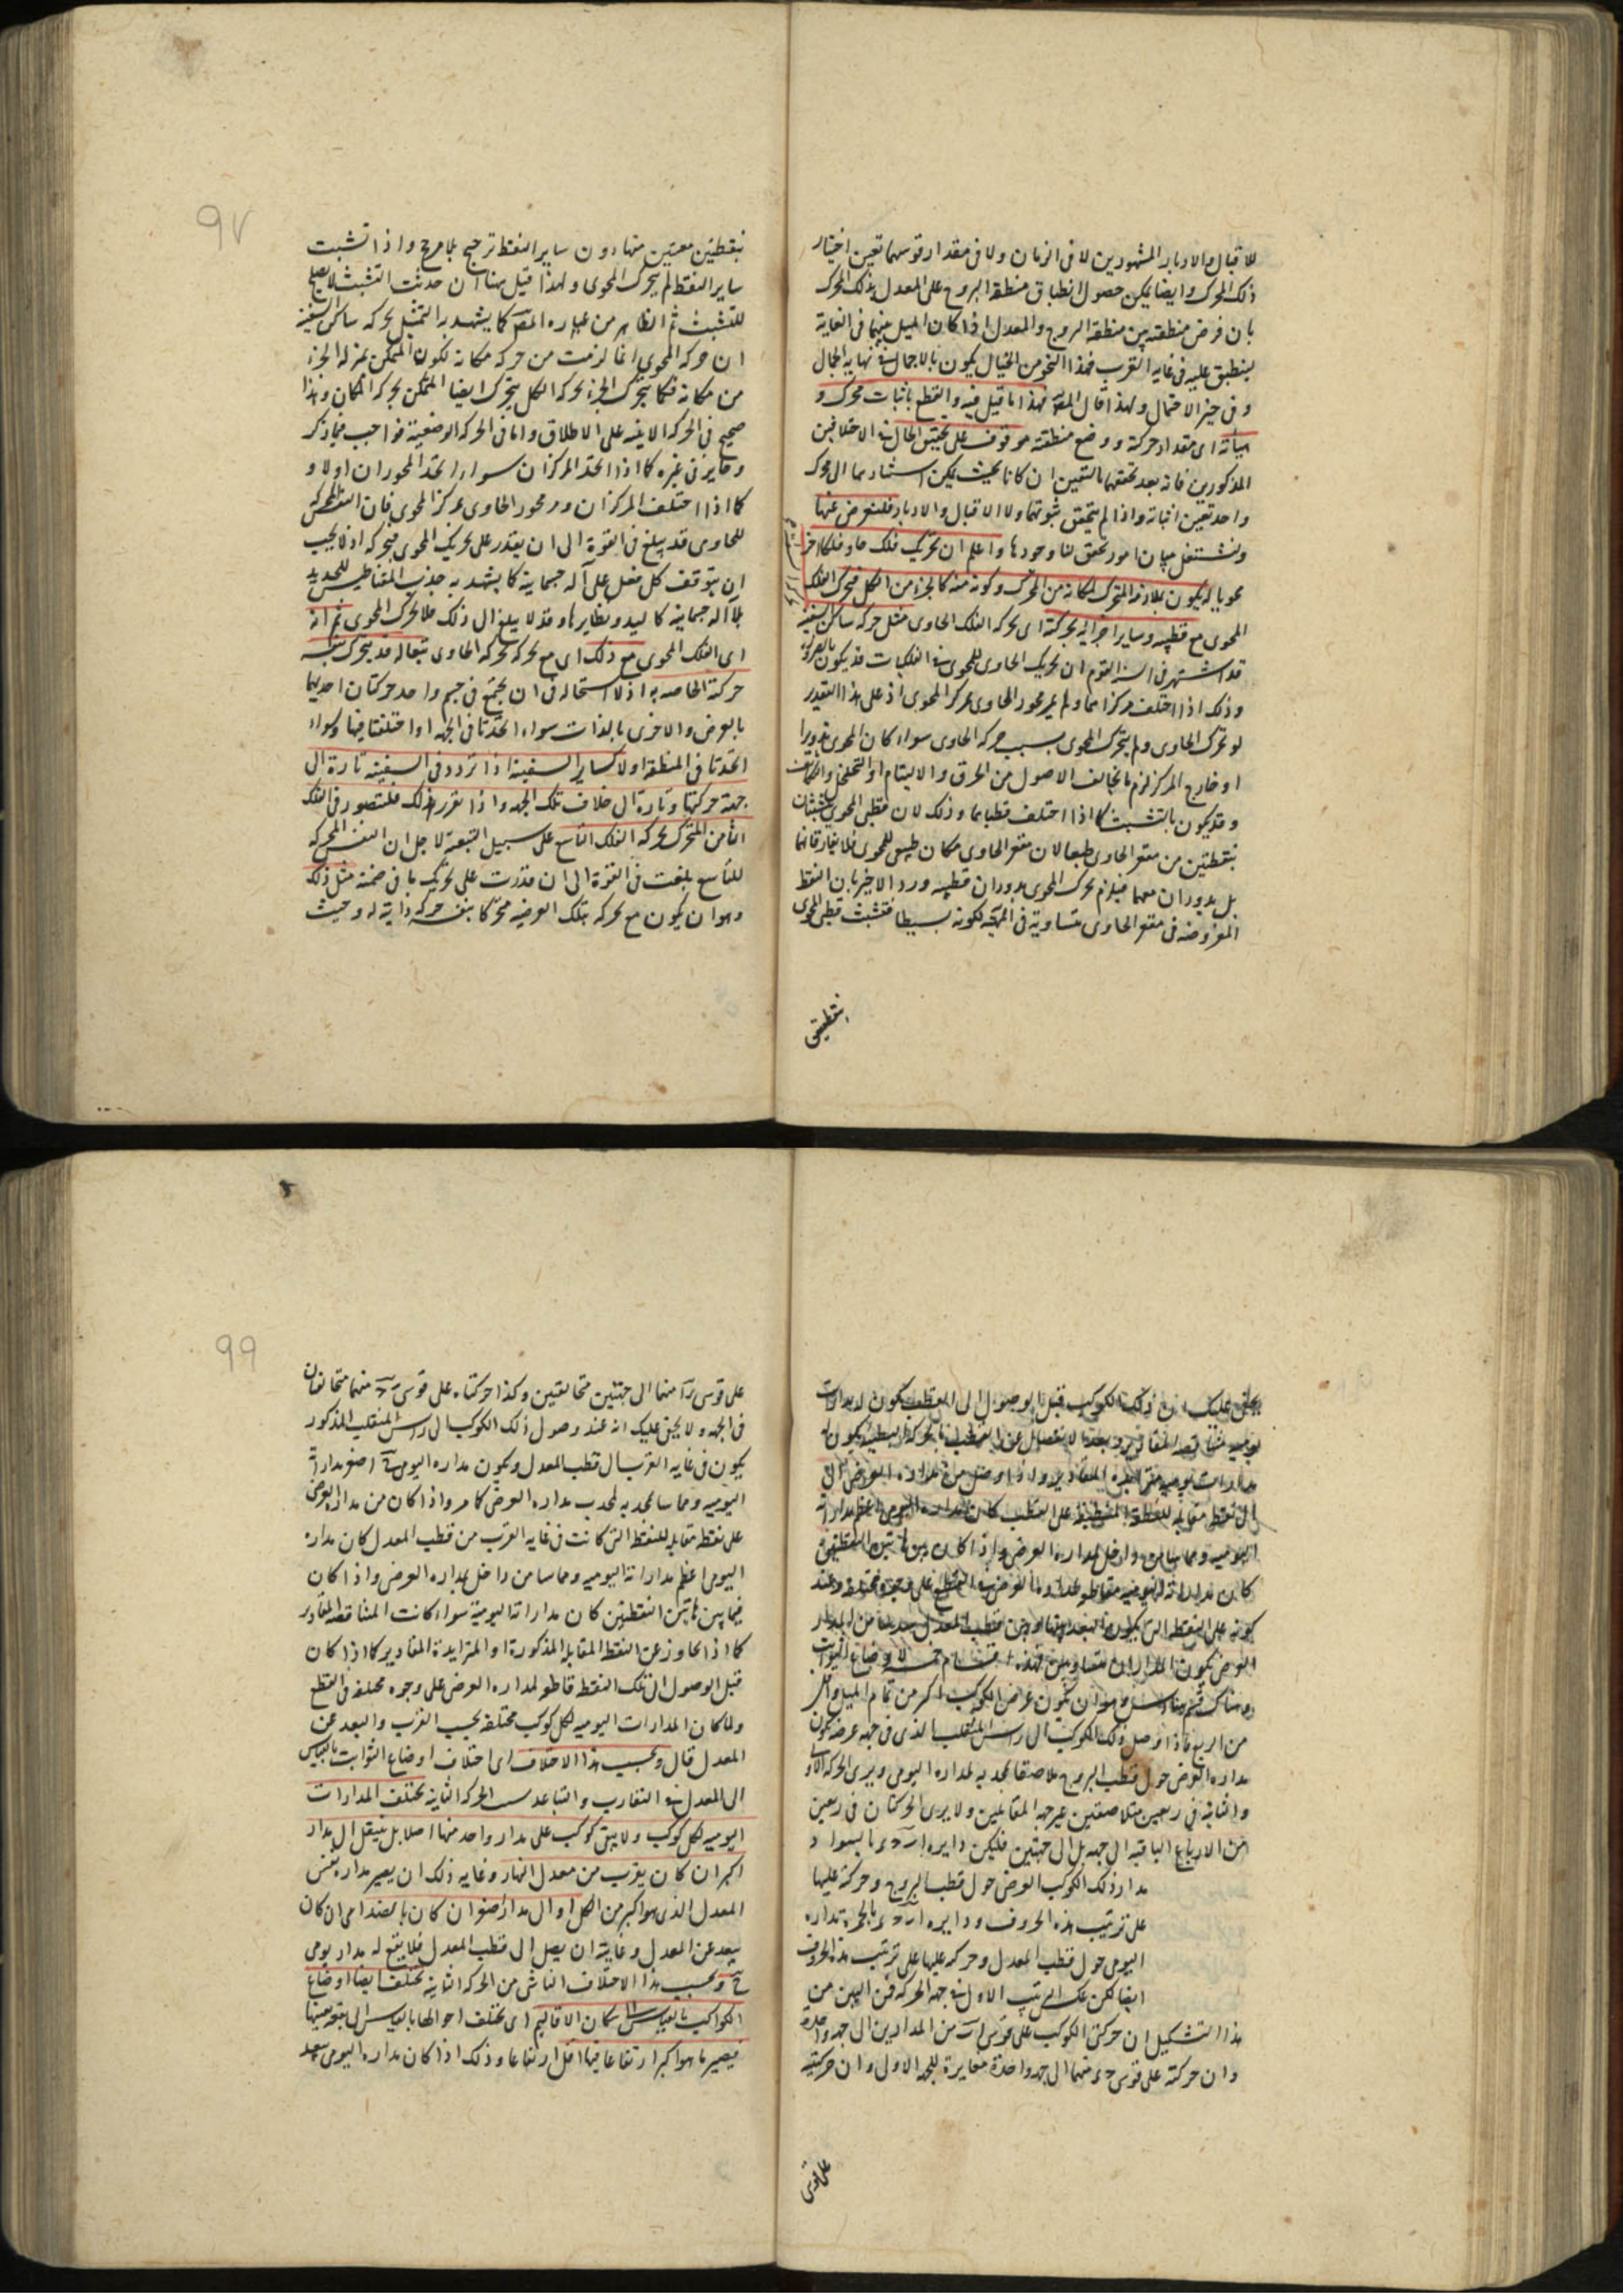 للاقبال والادبار المشهورين لا فى الزمان ولا فى مقدار قوسهما تعين اختيار
ذلك المحرك وايضا يمكن حصول انطباق منطقة البروج على المعدل بذلك المحرك
بان فرض منطقته بين منطقة البروج والمعدل اذا كان الميل بينهما فى الغاية
ينطبق عليه فى غاية القرب فهذا النحو من الخيال يكون بالاجمال فى نهاية الجمال
وفى حيز الاحتمال ولهذا قال المص فهذا ما قيل فيه والقطع باثبات محرك و
هيأته اى مقدار حركته ووضع منطقته موقوف على تحقيق الحال فى الاختلافين
المذكورين فانه بعد تحققهما بالتعين ان كانا بحيث يمكن استنادهما الى محرك
واحد تعين اثباته واذا لم يتحقق ثبوتهما ولا الاقبال والادبار فلنعرض عنها
ونشتغل ببيان امور تحقق لنا وجودها واعلم ان تحريك فلك حاو فلكا اخر
محويا له يكون بملازمة المتحرك لمكانه من المحرك وكونه منه كالجزء من الكل فيتحرك الفلك
المحوى مع قطبيه وساير اجزائه بحركته اى بحركة الفلك الحاوى مثل حركة ساكن السفينة
قد اشتهر فى السنة القوم ان تحريك الحاوى للمحوى فى الفلكيات قد يكون بالضرورة
وذلك اذا اختلف مركزاهما ولم يمر محور الحاوى بمركز المحوى اذ على هذا التقدير
لو تحرك الحاوى ولم يتحرك المحوى بسبب حركة الحاوى سواء كان المحوى تدويرا
او خارج المركز لزم ما يخالف الاصول من الخرق والالتيام او التخلخل والتكاثف
وقد يكون بالتشبث كما اذا اختلف قطباهما وذلك لان قطبى المحوى يتشبثان
بنقطتين من مقعر الحاوى طبعا لان مقعر الحاوى مكان طبيعى للمحوى فلا يفارقانهما
بل يدوران معهما فيلزم تحرك المحوى بدوران قطبيه ورد الاخير بان النقط
المفروضة فى مقعر الحاوى متساوية فى المهية لكونه بسيطا فتشبث قطبى المحوى
بنقطتين
97
بنقطتين معينين منها دون ساير النقط ترجيح بلا مرجح واذا تشبث
ساير النقط لم يتحرك المحوى ولهذا قيل هنا ان حديث التشبث لا يصلح
للتشبث ثم الظاهر من عبارة المص كما يشهد به التمثيل بحركة ساكن السفينة
ان حركة المحوى انما لزمت من حركة مكانه لكون المتمكن بمنزلة الجزء
من مكانه فكما يتحرك الجزء بحركة الكل يتحرك ايضا المتمكن بحركة المكان وهذا
صحيح فى الحركة الاينية على الاطلاق واما فى الحركة الوضعية فواجب فيما ذكر
وجايز فى غيره كما اذا اتحد المركزان سواء اتحد المحوران اولا و
كما اذا اختلف المركزان ومر محور الحاوى بمركز المحوى فان النفس المحركة
للحاوى قد يبلغ فى القوة الى ان يقدر على تحريك المحوى فيحركه اذ لا يجب
ان يتوقف كل فعل على آلة جسمانية كما يشهد به جذب المغناطيس للحديد
بلا آلة جسمانية كاليد ونظايرها وقد لا يبلغ الى ذلك فلا تحرك المحوى ثم انه
اى الفلك المحوى مع ذلك اى مع تحركه بحركة الحاوى تبعا له قد يتحرك بنفسه
حركته الخاصة به اذ لا استحالة فى ان يجتمع فى جسم واحد حركتان احديهما
بالعرض والاخرى بالذات سواء اتحدتا فى الجهة او اختلفتا فيها وسواء
اتحدتا فى المنطقة اولا كساير السفينة اذا تردد فى السفينة تارة الى
جهة حركتها وتارة الى خلاف تلك الجهة واذا تقرر ذلك فلنتصور فى الفلك
الثامن المتحرك بحركة الفلك التاسع على سبيل التبعية لاجل ان النفس المحركة
للتاسع بلغت فى القوة الى ان قدرت على تحريك ما فى ضمنه مثل ذلك
وهو ان يكون مع تحركه بتلك العرضية متحركا بنفسه حركة ذاتية له وحيث
يخفى عليك ان ذلك الكوكب قبل الوصول الى القطب يكون له مدارات
يومية متناقصة المقادير وبعد الانفصال عن القطب بالحركة البطيئة يكون له
مدارات يومية متزايدة المقادير واذا وصل من مداره العرضى الى
الى نقطة مقابلة للنقطة المنطبقة على القطب كان مداره اليومى اعظم مداراته
اليومية ومماسا من داخل لمداره العرضى واذا كان بين هاتين النقطتين
كان مداراته اليومية مقاطعة لمداره العرضى فى القطع على وجوه مختلفة وعند
كونه على النقطة التى يكون البعد بينها وبين قطب المعدل
العرضى يكون المداران متساويين فهذه اقسام خمسة لاوضاع الثوابت
وهناك قسم سادس وهو ان يكون عرض الكوكب اكثر من تمام الميل واقل
من الربع فاذا وصل ذلك الكوكب الى راس المنقلب الذى فى جهة عرضه يكون
مداره العرضى حول قطب البروج ملاصقا بمحدبه لمداره اليومى ويرى الحركة الاولى
والثانية فى ربعين متلاصقين غير جهة المقابلين ولا يرى الحركتان فى ربعين
من الارباع الباقية الى جهة بل الى جهتين فليكن دايرة ا ب ح ء بالسواد و
مدار ذلك الكوكب العرضى حول قطب البروج وحركته عليها
على ترتيب هذه الحروف ودايرة ا ب ح ء بالحمرة مداره
اليومى حول قطب المعدل وحركته عليها على ترتيب هذه الحروف
ايضا لكن عكس الترتيب الاول فى جهة الحركة فمن البين من
هذا التشكيل ان حركتى الكوكب على قوس ا ب من المدارين الى جهة واحدة
وان حركته على قوس ح ء منهما الى جهة واحدة مغايرة للجهة الاولى وان حركتيه
على قوس
99
على قوس ء ا منهما الى جهتين متخالفتين وكذا حركتاه على قوس ب ح منهما متخالفتان
فى الجهة ولا يخفى عليك انه عند وصول ذلك الكوكب الى راس المنقلب المذكور
يكون فى غاية القرب الى قطب المعدل ويكون مداره اليومى اصغر مداراته
اليومية ومماسا بمحدبه لمحدب مداره العرضى كما مر واذا كان من مداره العرضى
على نقطة مقابلة للنقطة التى كانت فى غاية القرب من قطب المعدل كان مداره
اليومى اعظم مداراته اليومية ومماسا من داخل لمداره العرضى واذا كان
فيما بين هاتين النقطتين كان مداراته اليومية سواء كانت المتناقصة المقادير
كما اذا تجاوز عن النقطة المقابلة المذكورة او المتزايدة المقادير كما اذا كان
قبل الوصول الى تلك النقطة قاطعة لمداره العرضى على وجوه مختلفة فى القطع
ولما كان المدارات اليومية لكل كوكب مختلفة بحسب القرب والبعد عن
المعدل قال وبحسب هذا الاختلاف اى اختلاف اوضاع الثوابت بالقياس
الى المعدل فى التقارب والتباعد بسبب الحركة الثانية تختلف المدارات
اليومية لكل كوكب ولا يبقى كوكب على مدار واحد منها اصلا بل ينتقل الى مدار
اكبر ان كان يقرب من معدل النهار وغاية ذلك ان يصير مداره نفس
المعدل الذى هو اكبر من الكل او الى مدار اصغر ان كان بالضد اى ان كان
يبعد عن المعدل وغايته ان يصل الى قطب المعدل فلا يبقى له مدار يومى
ح وبحسب هذا الاختلاف الناشى من الحركة الثانية تختلف ايضا اوضاع
الكواكب بالقياس الى سكان الاقاليم اى تختلف احوالها بالقياس الى بقعة بعينها
فيصير ما هو اكبر ارتفاعا فيها اقل ارتفاعا وذلك اذا كان مداره اليومى بعد